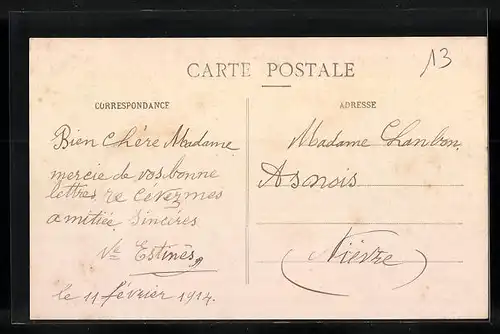 13
CARTE POSTALE
CORRESPONDANCE
Bien Chére Madame
mercie de vos bonne
lettres re cévez mes
amitiée Sincéres
Ve Estinès
le 11 février 1914.
ADRESSE
Madame Chanbon.
Asnois
(Nièvre)